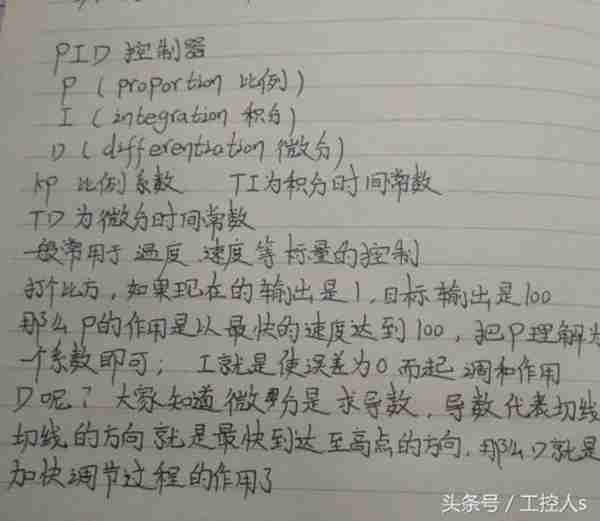 PID 控制器
P (proportion 比例)
I (integration 积分)
D (differentiation 微分)
KP 比例系数 TI为积分时间常数
TD 为微分时间常数
一般常用于 温度、速度等标量的控制
打个比方,如果现在的输出是1,目标输出是100
那么P的作用是以最快的速度达到100,把P理解为
一个系数即可;I就是使误差为0而起调和作用
D呢?大家知道微分是求导数,导数代表切线
切线的方向就是最快到达至高点的方向,那么D就是
加快调节过程的作用了
头条号 / 工控人s